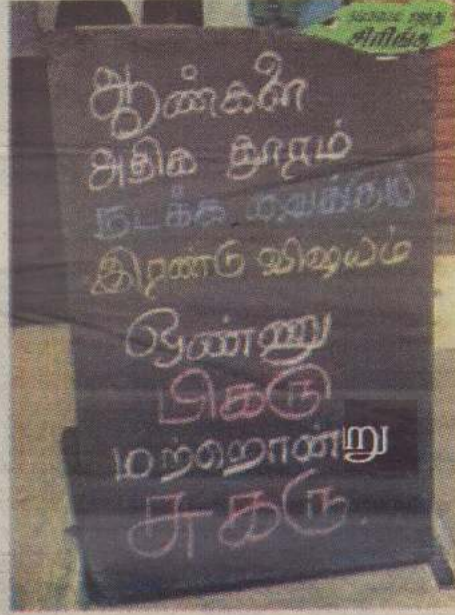 சிரிங்க
ஆண்களை
அதிக தூரம்
நடக்க வைக்கும்
இரண்டு விஷயம்
ஒண்ணு
பிகரு
மற்றொன்று
சுகரு.